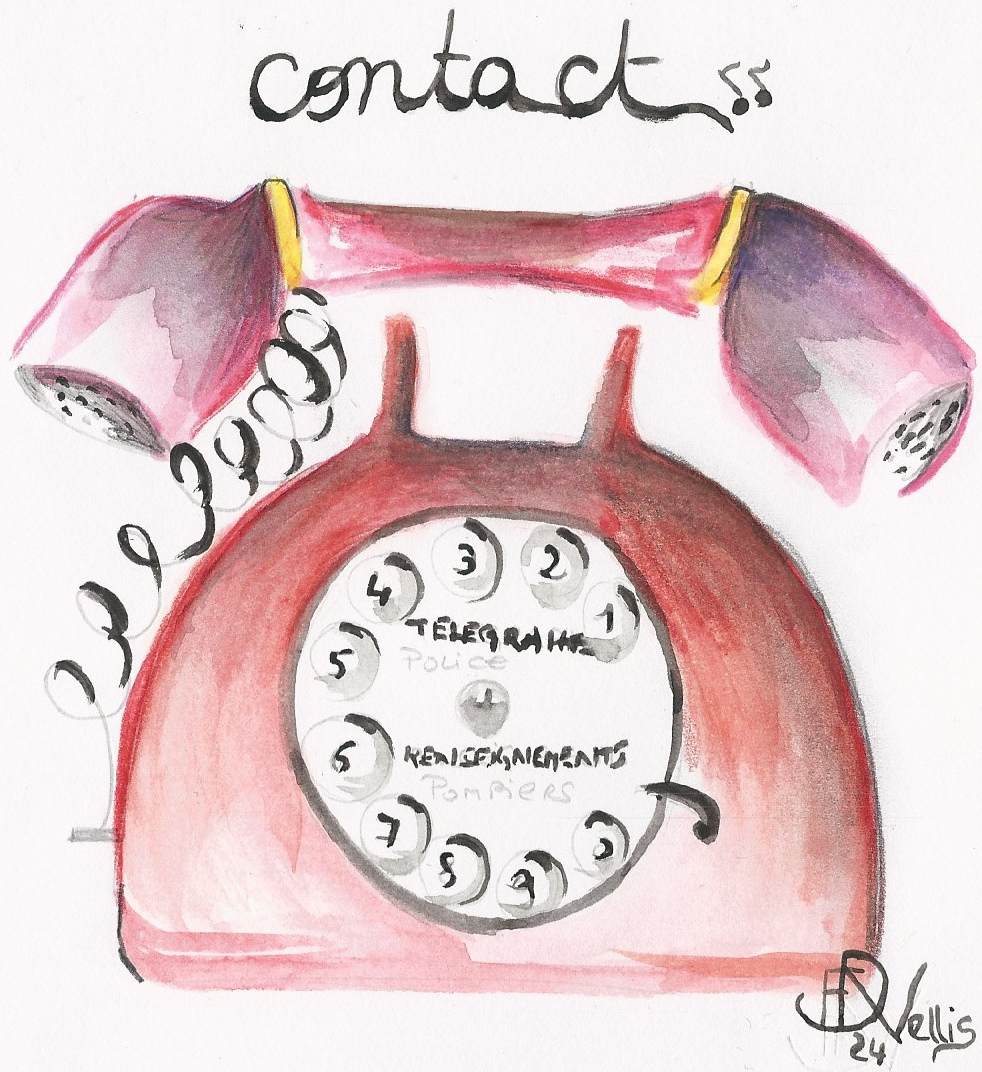 contact
3 2
4 1
TELEGRAME
5 Police
6 RENSEIGNEMENTS
Pompiers
7
8 9 0
Vellis
24